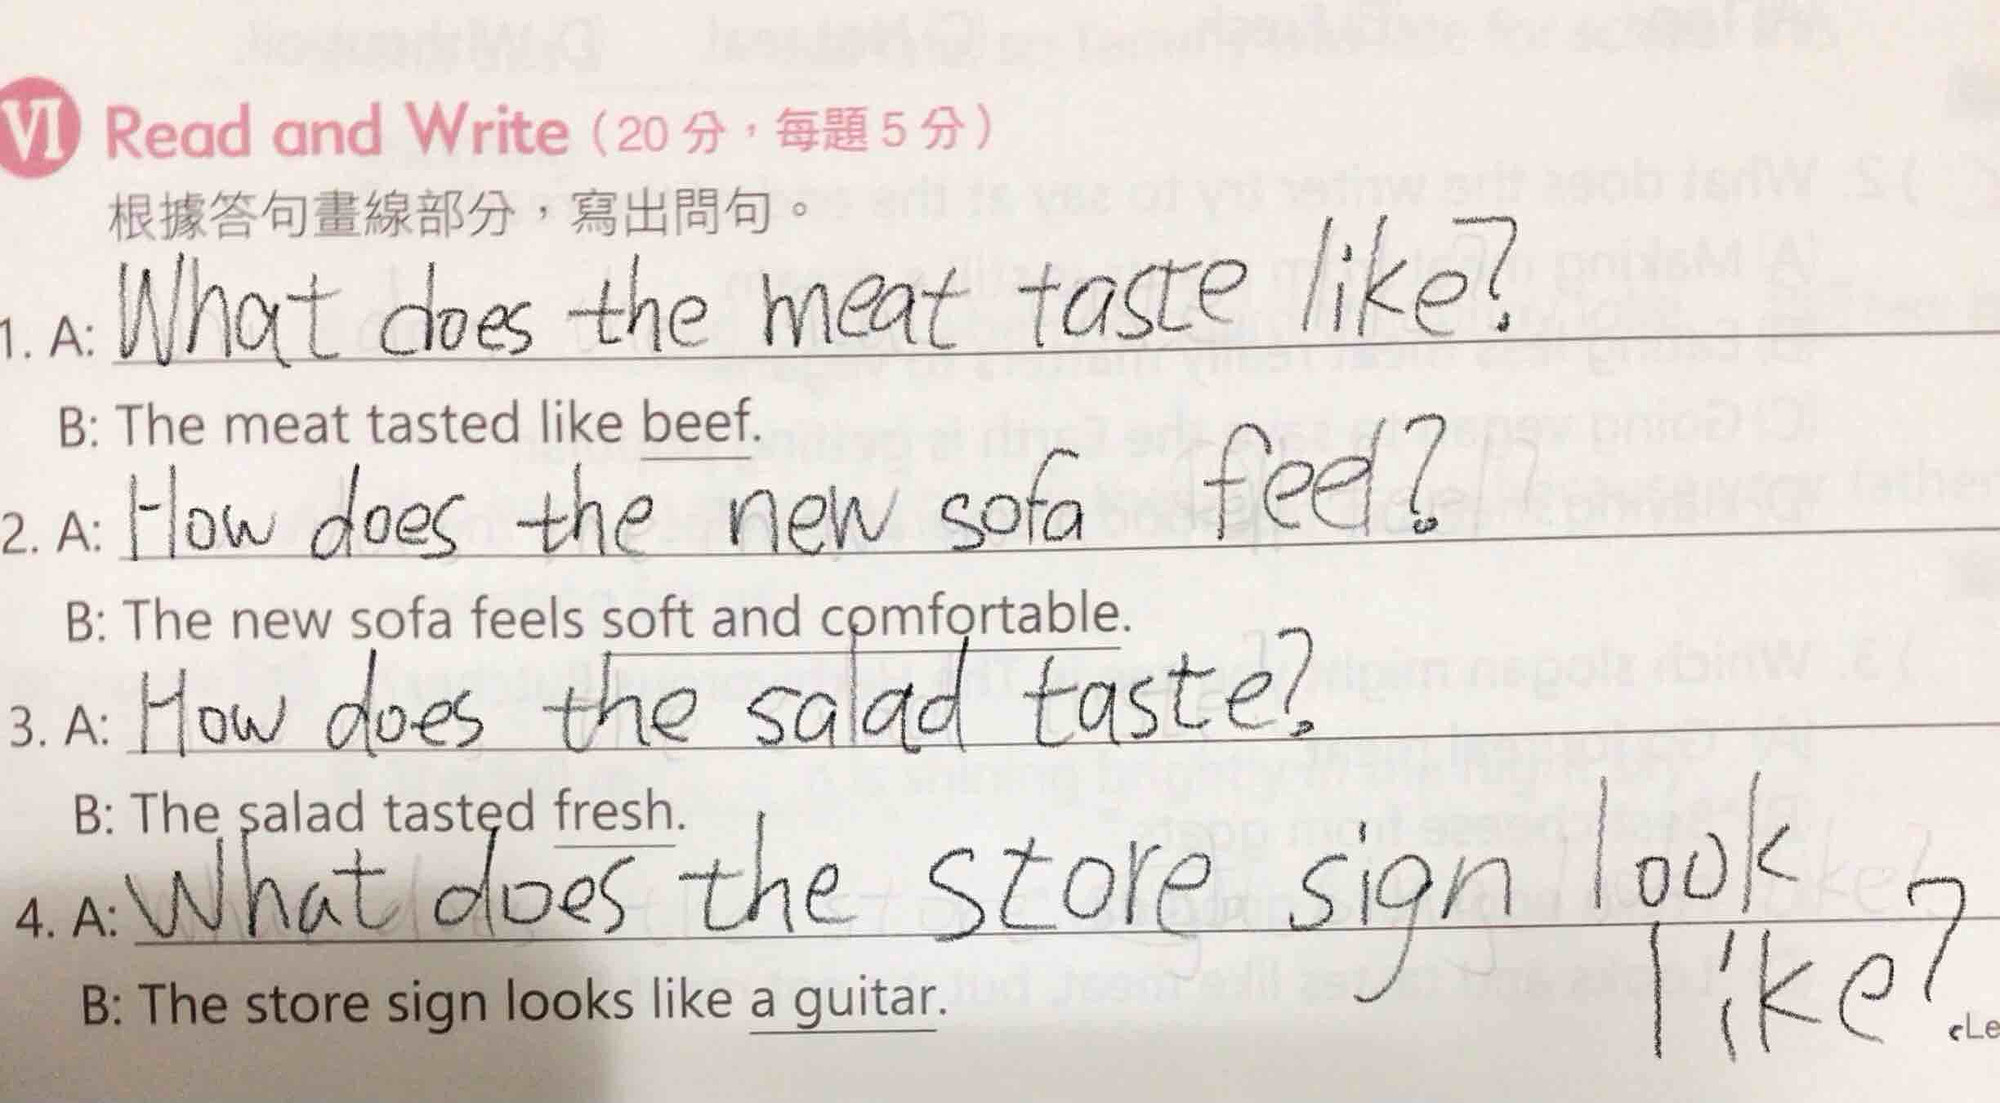 VI Read and Write（20 分，每題 5 分）
根據答句畫線部分，寫出問句。
1. A: What does the meat taste like?
B: The meat tasted like beef.
2. A: How does the new sofa feel?
B: The new sofa feels soft and comfortable.
3. A: How does the salad taste?
B: The salad tasted fresh.
4. A: What does the store sign look
like?
B: The store sign looks like a guitar.